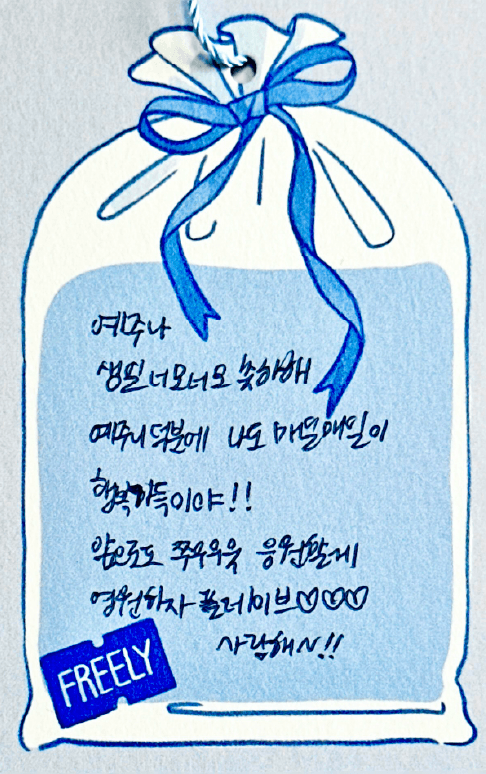 예주나
생일 너모너모 춧하해
예주니 덕분에 나도 매일매일이
행복가득이야!!
앞으로도 쭈우우욱 응원할게
영원하자 플레이브♡♡♡
사랑해!!
FREELY